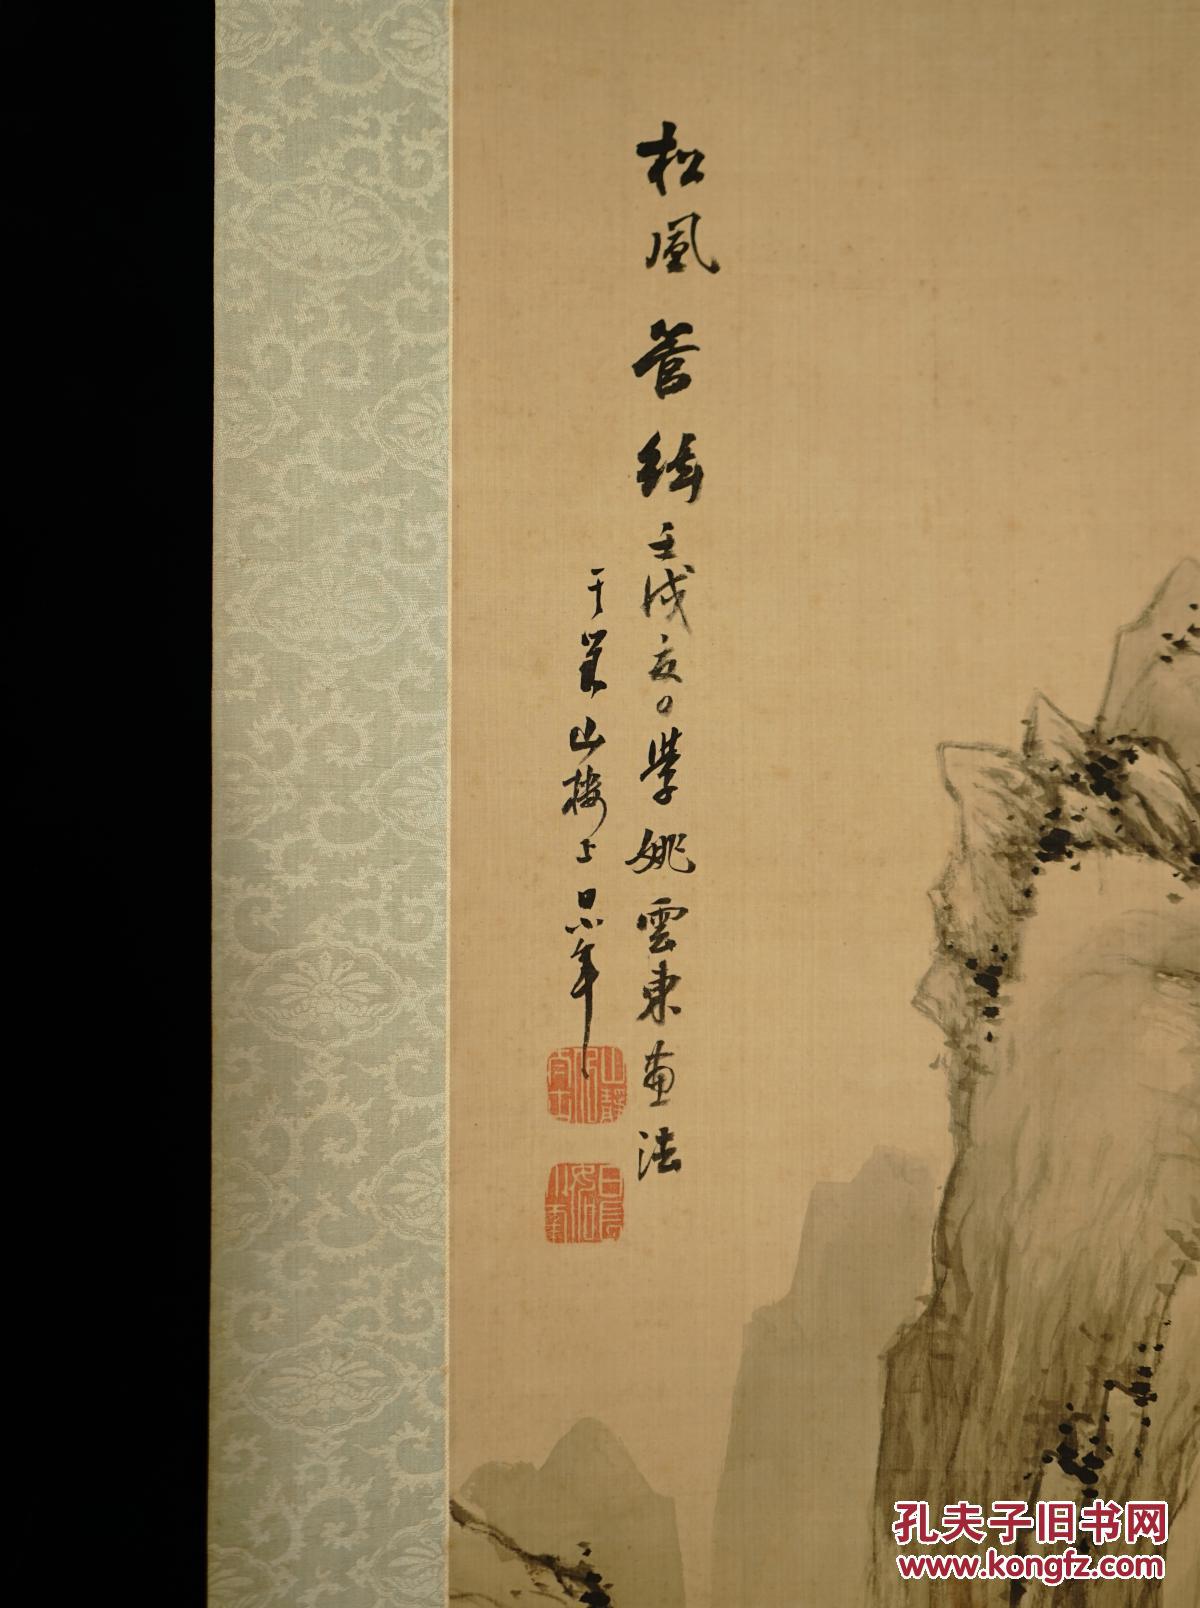 松風管絃壬戌夏日學姚雲東畫法
山樓上
孔夫子旧书网
www.kongfz.com